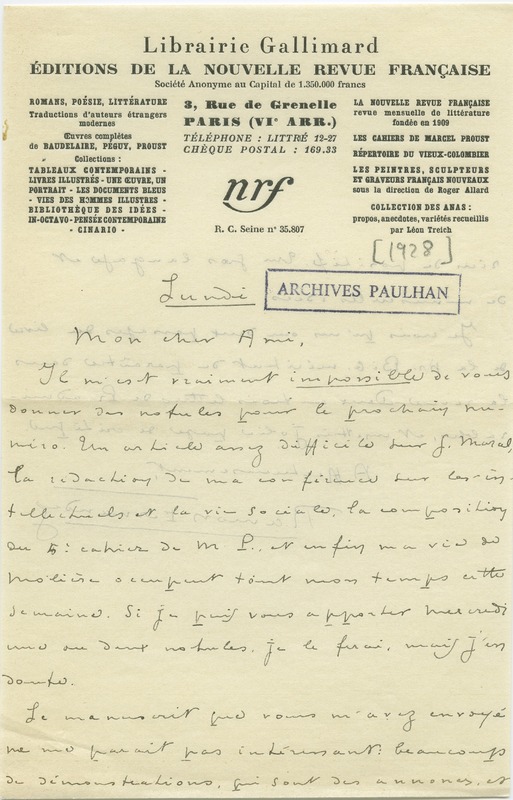 Librairie Gallimard
ÉDITIONS DE LA NOUVELLE REVUE FRANÇAISE
Société Anonyme au Capital de 1.350.000 francs
ROMANS, POÉSIE, LITTÉRATURE
Traductions d'auteurs étrangers
modernes
Œuvres complètes
de BAUDELAIRE, PÉGUY, PROUST
Collections :
TABLEAUX CONTEMPORAINS -
LIVRES ILLUSTRÉS - UNE ŒUVRE, UN
PORTRAIT - LES DOCUMENTS BLEUS
- VIES DES HOMMES ILLUSTRES -
BIBLIOTHÈQUE DES IDÉES -
IN-OCTAVO - PENSÉE CONTEMPORAINE
- CINARIO -
3, Rue de Grenelle
PARIS (VIe ARR.)
TÉLÉPHONE : LITTRÉ 12-27
CHÈQUE POSTAL : 169.33
nrf
R. C. Seine n° 35.807
LA NOUVELLE REVUE FRANÇAISE
revue mensuelle de littérature
fondée en 1909
LES CAHIERS DE MARCEL PROUST
RÉPERTOIRE DU VIEUX-COLOMBIER
LES PEINTRES, SCULPTEURS
ET GRAVEURS FRANÇAIS NOUVEAUX
sous la direction de Roger Allard
COLLECTION DES ANAS :
propos, anecdotes, variétés recueillis
par Léon Treich
[1928]
ARCHIVES PAULHAN
Lundi
Mon cher Ami,
Il m'est vraiment impossible de vous
donner des notules pour le prochain nu-
méro. Un article assez difficile sur G. Marcel,
la rédaction de ma conférence sur les in-
tellectuels et la vie sociale, la composition
du 5e cahier de M. P., et enfin ma vie de
Molière occupent tout mon temps cette
semaine. Si je puis vous apporter mercredi
une ou deux notules, je le ferai, mais j'en
doute.
Le manuscrit que vous m'avez envoyé
ne me paraît pas intéressant : beaucoup
de démonstrations, qui sont des annonces, et